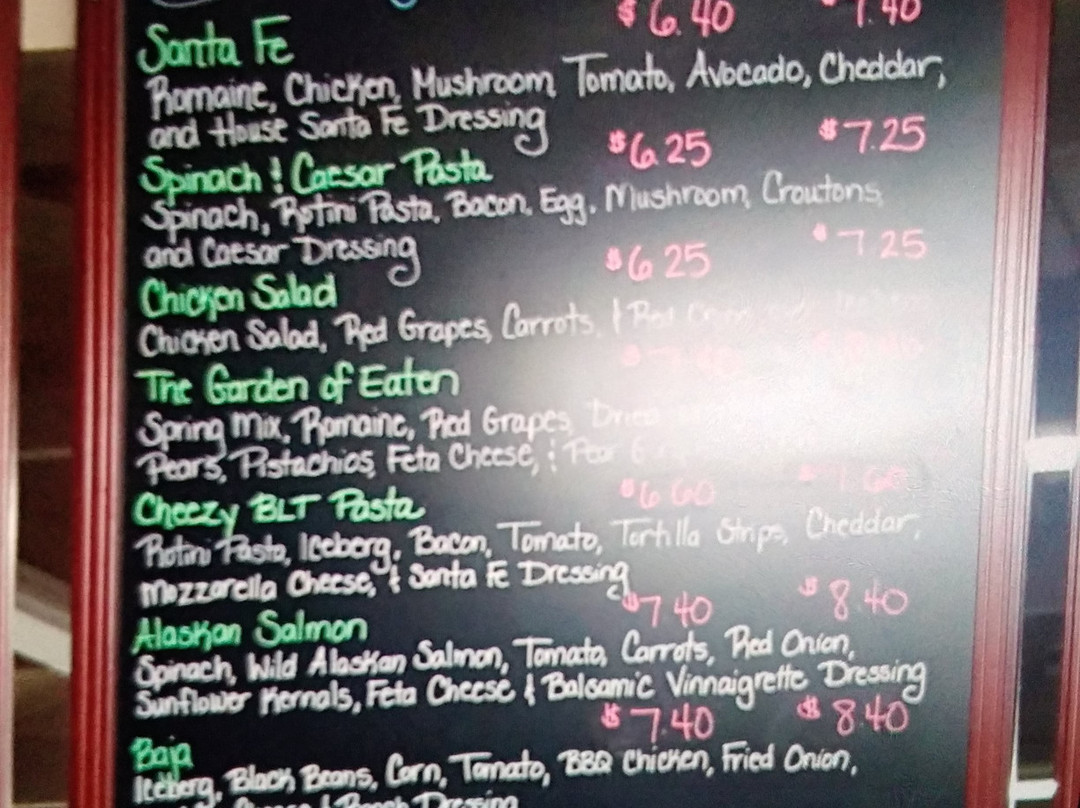 $6.40 7.40
Santa Fe
Romaine, Chicken, Mushroom, Tomato, Avocado, Cheddar,
and House Santa Fe Dressing
$6.25 $7.25
Spinach & Caesar Pasta
Spinach, Rotini Pasta, Bacon, Egg, Mushroom, Croutons,
and Caesar Dressing
$6.25 $7.25
Chicken Salad
Chicken Salad, Red Grapes, Carrots, & Red
The Garden of Eaten
Spring Mix, Romaine, Red Grapes, Dried
Pears, Pistachios, Feta Cheese, &
$6.60 $7.60
Cheezy BLT Pasta
Rotini Pasta, Iceberg, Bacon, Tomato, Tortilla Strips, Cheddar,
Mozzarella Cheese, & Santa Fe Dressing
$7.40 $8.40
Alaskan Salmon
Spinach, Wild Alaskan Salmon, Tomato, Carrots, Red Onion,
Sunflower Kernals, Feta Cheese & Balsamic Vinnaigrette Dressing
$7.40 $8.40
Baja
Iceberg, Black Beans, Corn, Tomato, BBQ Chicken, Fried Onion,
Cheese & Ranch Dressing